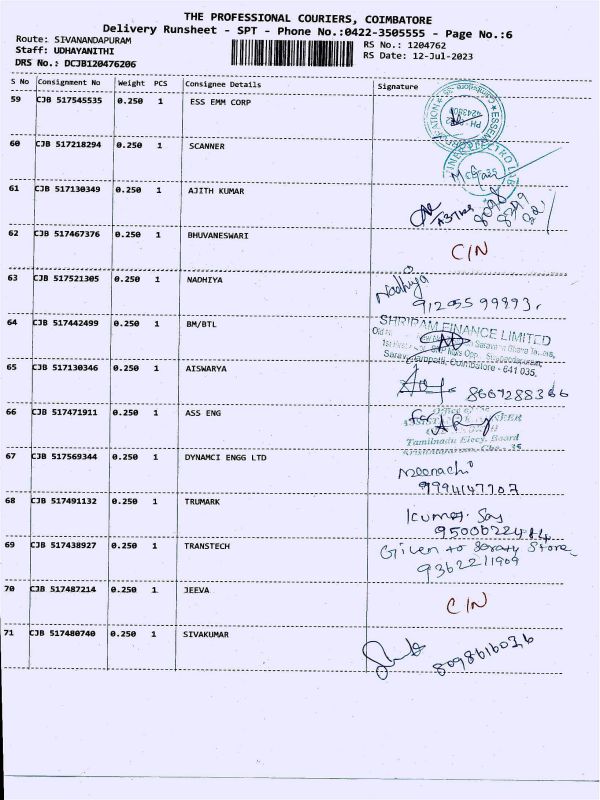 THE PROFESSIONAL COURIERS, COIMBATORE
Delivery Runsheet - SPT - Phone No.:0422-3505555 - Page No.:6
Route: SIVANANDAPURAM
Staff: UDHAYANITHI
DRS No.: DCJB120476206
RS No.: 1204762
RS Date: 12-Jul-2023
S No Consignment No Weight PCS Consignee Details Signature
59 CJB 517545535 0.250 1 ESS EMM CORP
60 CJB 517218294 0.250 1 SCANNER
61 CJB 517130349 0.250 1 AJITH KUMAR
62 CJB 517467376 0.250 1 BHUVANESWARI C/N
63 CJB 517521305 0.250 1 NADHIYA Nadhiya
64 CJB 517442499 0.250 1 BM/BTL SHRIRAM FINANCE LIMITED
Coimbatore - 641 035.
65 CJB 517130346 0.250 1 AISWARYA
8667288366
66 CJB 517471911 0.250 1 ASS ENG for
Office of the
Tamilnadu Elecy. Board
67 CJB 517569344 0.250 1 DYNAMCI ENGG LTD Meenachi
9994147707
68 CJB 517491132 0.250 1 TRUMARK Kumar
69 CJB 517438927 0.250 1 TRANSTECH Given to Store
9362211909
70 CJB 517487214 0.250 1 JEEVA C/N
71 CJB 517480740 0.250 1 SIVAKUMAR 8098616036